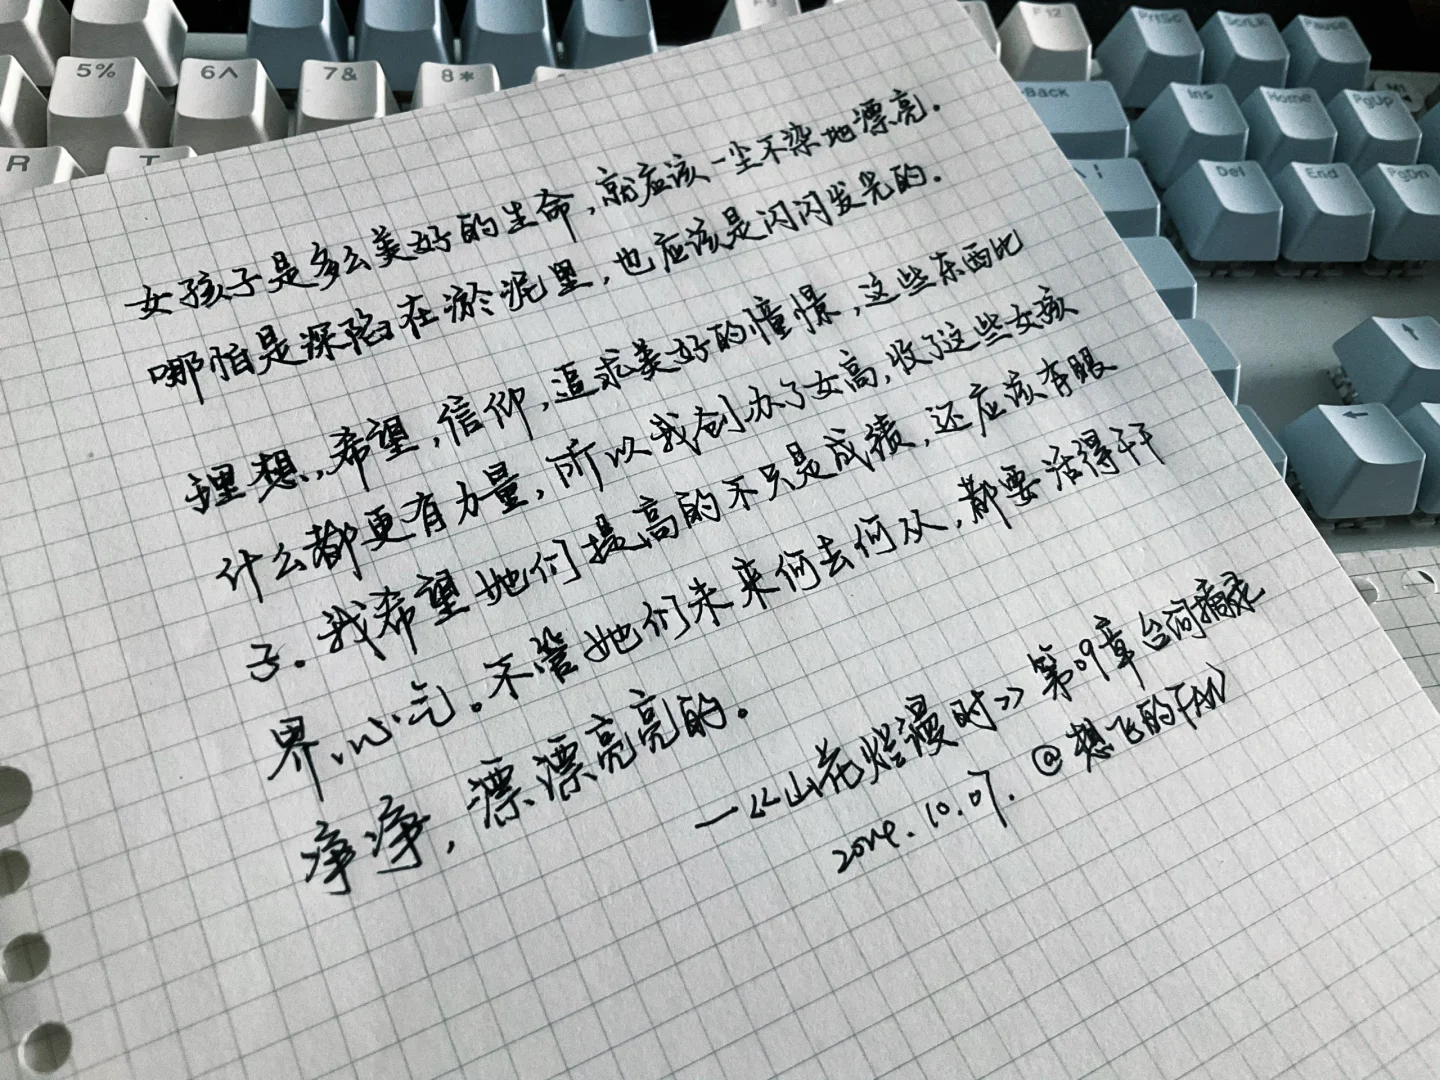 5% 6^ 7& 8* F12 PrtSc ScrLK Pause
Back Ins Home PgUp
R T Del End PgDn
女孩子是多么美好的生命，就应该一尘不染地漂亮.
哪怕是深陷在淤泥里，也应该是闪闪发光的.
理想，希望，信仰，追求美好的憧憬，这些东西比
什么都更有力量，所以我创办了女高，收了这些女孩
子. 我希望她们提高的不只是成绩，还应该有眼
界、心气。不管她们未来何去何从，都要活得干干
净净，漂漂亮亮的.
—《山花烂漫时》第09章台词摘录
2024.10.07. @想飞的FAN